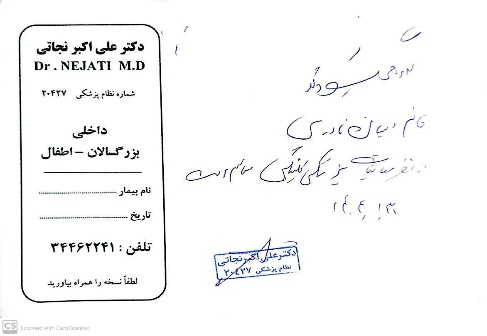 دکتر علی اکبر نجاتی
Dr . NEJATI M.D
شماره نظام پزشکی ۲۰۴۲۷
داخلی
بزرگسالان - اطفال
نام بیمار
تاریخ
تلفن : ۳۴۴۶۲۲۴۱
لطفاً نسخه را همراه بیاورید
گواهی
خانم نادری
از نظر معاینات پزشکی کلینیکی سالم است
دکتر علی اکبر نجاتی
نظام پزشکی ۲۰۴۲۷
CS Scanned with CamScanner